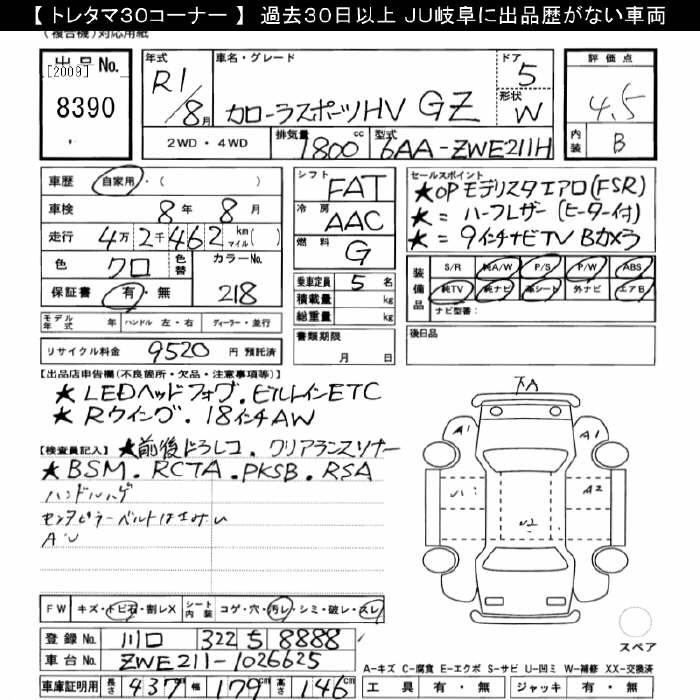 【トレタマ30コーナー】 過去30日以上 JU岐阜に出品歴がない車両
(複合機)対応用紙
出品No.
[2009]
8390
年式
R1/8月
車名・グレード
カローラスポーツHV GZ
ドア
5
形状
W
評価点
4.5
内装
B
2WD・4WD
排気量
1800cc
型式
6AA-ZWE211H
車歴 自家用・( )
車検 8年 8月
走行 4万2千462 km マイル( )
色 クロ 色替 カラーNo.
218
保証書 有・無
シフト FAT
冷房 AAC
燃料 G
乗車定員 5名
積載量 kg
総重量 kg
セールスポイント
★OPモデリスタエアロ(FSR)
★=ハーフレザー(ヒーター付)
★=9インチナビTV Bカメラ
装備品
S/R 純A/W P/S P/W ABS
純TV 純ナビ 革シート 外ナビ エアB
ナビ型番:
モデル年式 年 ハンドル 左・右 ディーラー・並行
リサイクル料金 9520円 預託済
書類期限
月 日
後日品
【出品店申告欄(不良箇所・欠品・注意事項等)】
★LEDヘッドフォグ.ビルトインETC
★Rウイング.18インチAW
【検査員記入】★前後ドラレコ.クリアランスソナー
★BSM.RCTA.PKSB.RSA
ハンドルハゲ
センタピラーベルトはさみい
AU
下A
A1
A1
U1
A2
U2
FW キズ・トビ石・割レX シート内装 コゲ・穴・汚レ・シミ・破レ・スレ
登録No. 川口 322 ち 8888
車台No. ZWE211-1026625
車庫証明用 長さ 437 幅 179 高さ 146cm
スペア
A-キズ C-腐食 E-エクボ S-サビ U-凹ミ W-補修 XX-交換済
工具 有・無 ジャッキ 有・無